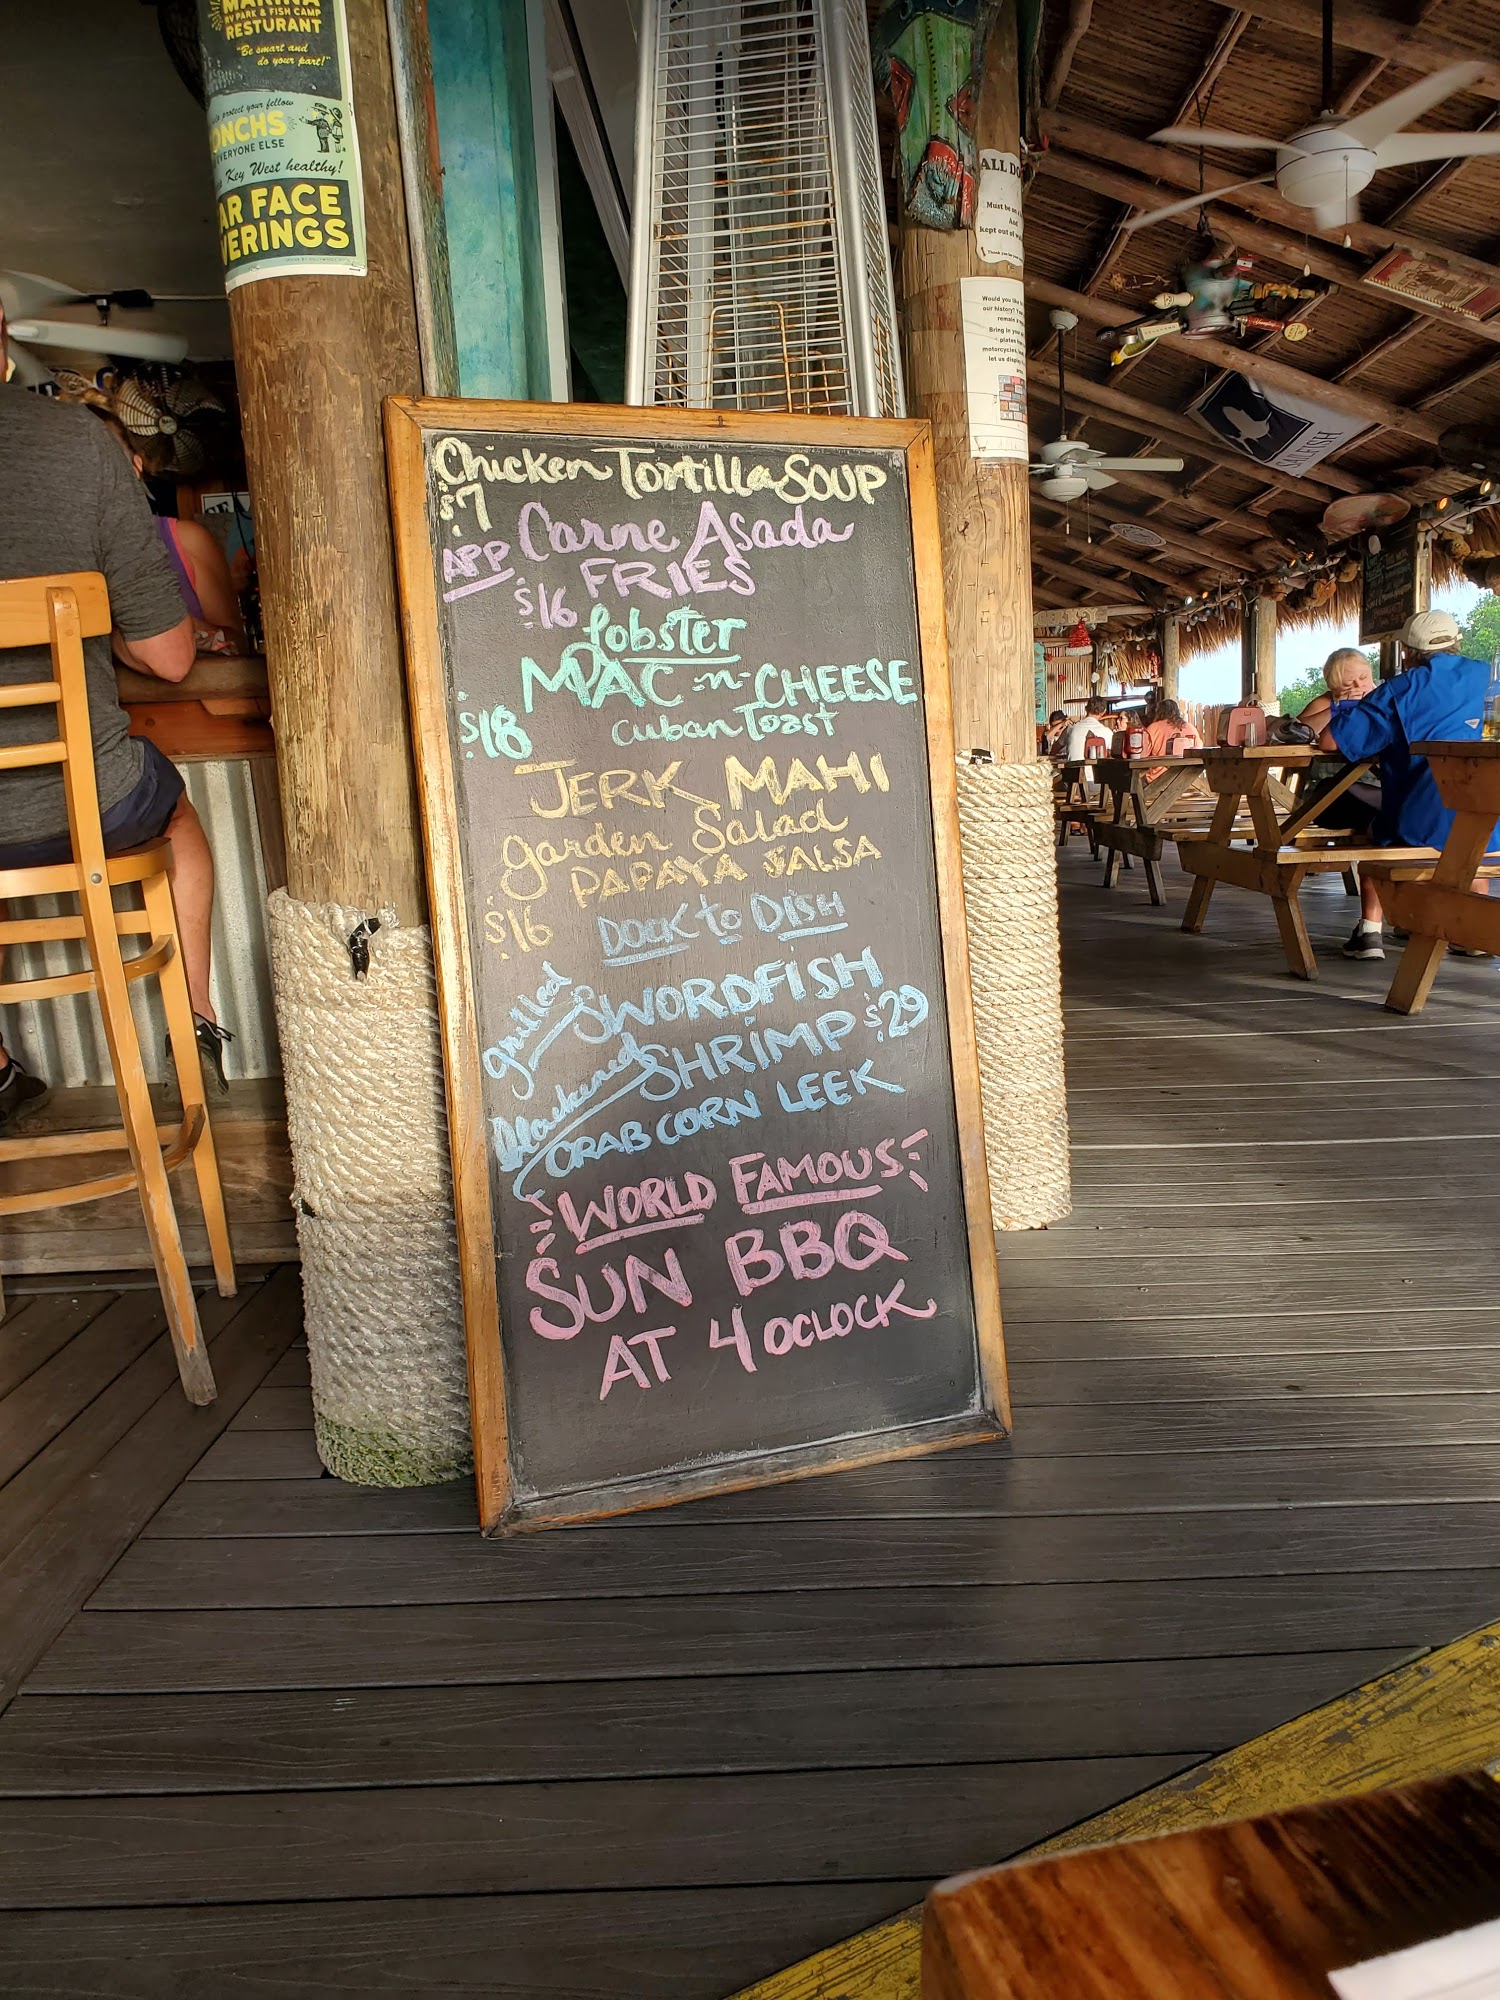 MARINA
RV PARK & FISH CAMP
RESTURANT
"Be smart and
do your part!"
protect your fellow
ONCHS
EVERYONE ELSE
Key West healthy!
AR FACE
VERINGS
ALL DO
Must be on
And
kept out of
Thank you
Would you
our history?
remain
Bring in your
plates from
motorcycles,
let us display
SAILFISH
Chicken Tortilla SOUP
$7
APP Carne Asada
FRIES
$16
Lobster
MAC -n- CHEESE
$18 Cuban Toast
JERK MAHI
Garden Salad
PAPAYA SALSA
$16
DOCK to DISH
Grilled SWORDFISH
Blackened SHRIMP $29
CRAB CORN LEEK
WORLD FAMOUS
SUN BBQ
AT 4 OCLOCK